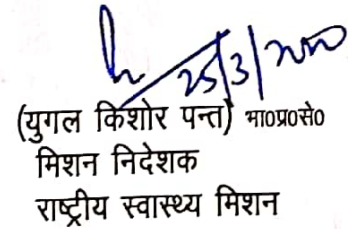 25/3/2020
(युगल किशोर पन्त) भा०प्र०से०
मिशन निदेशक
राष्ट्रीय स्वास्थ्य मिशन